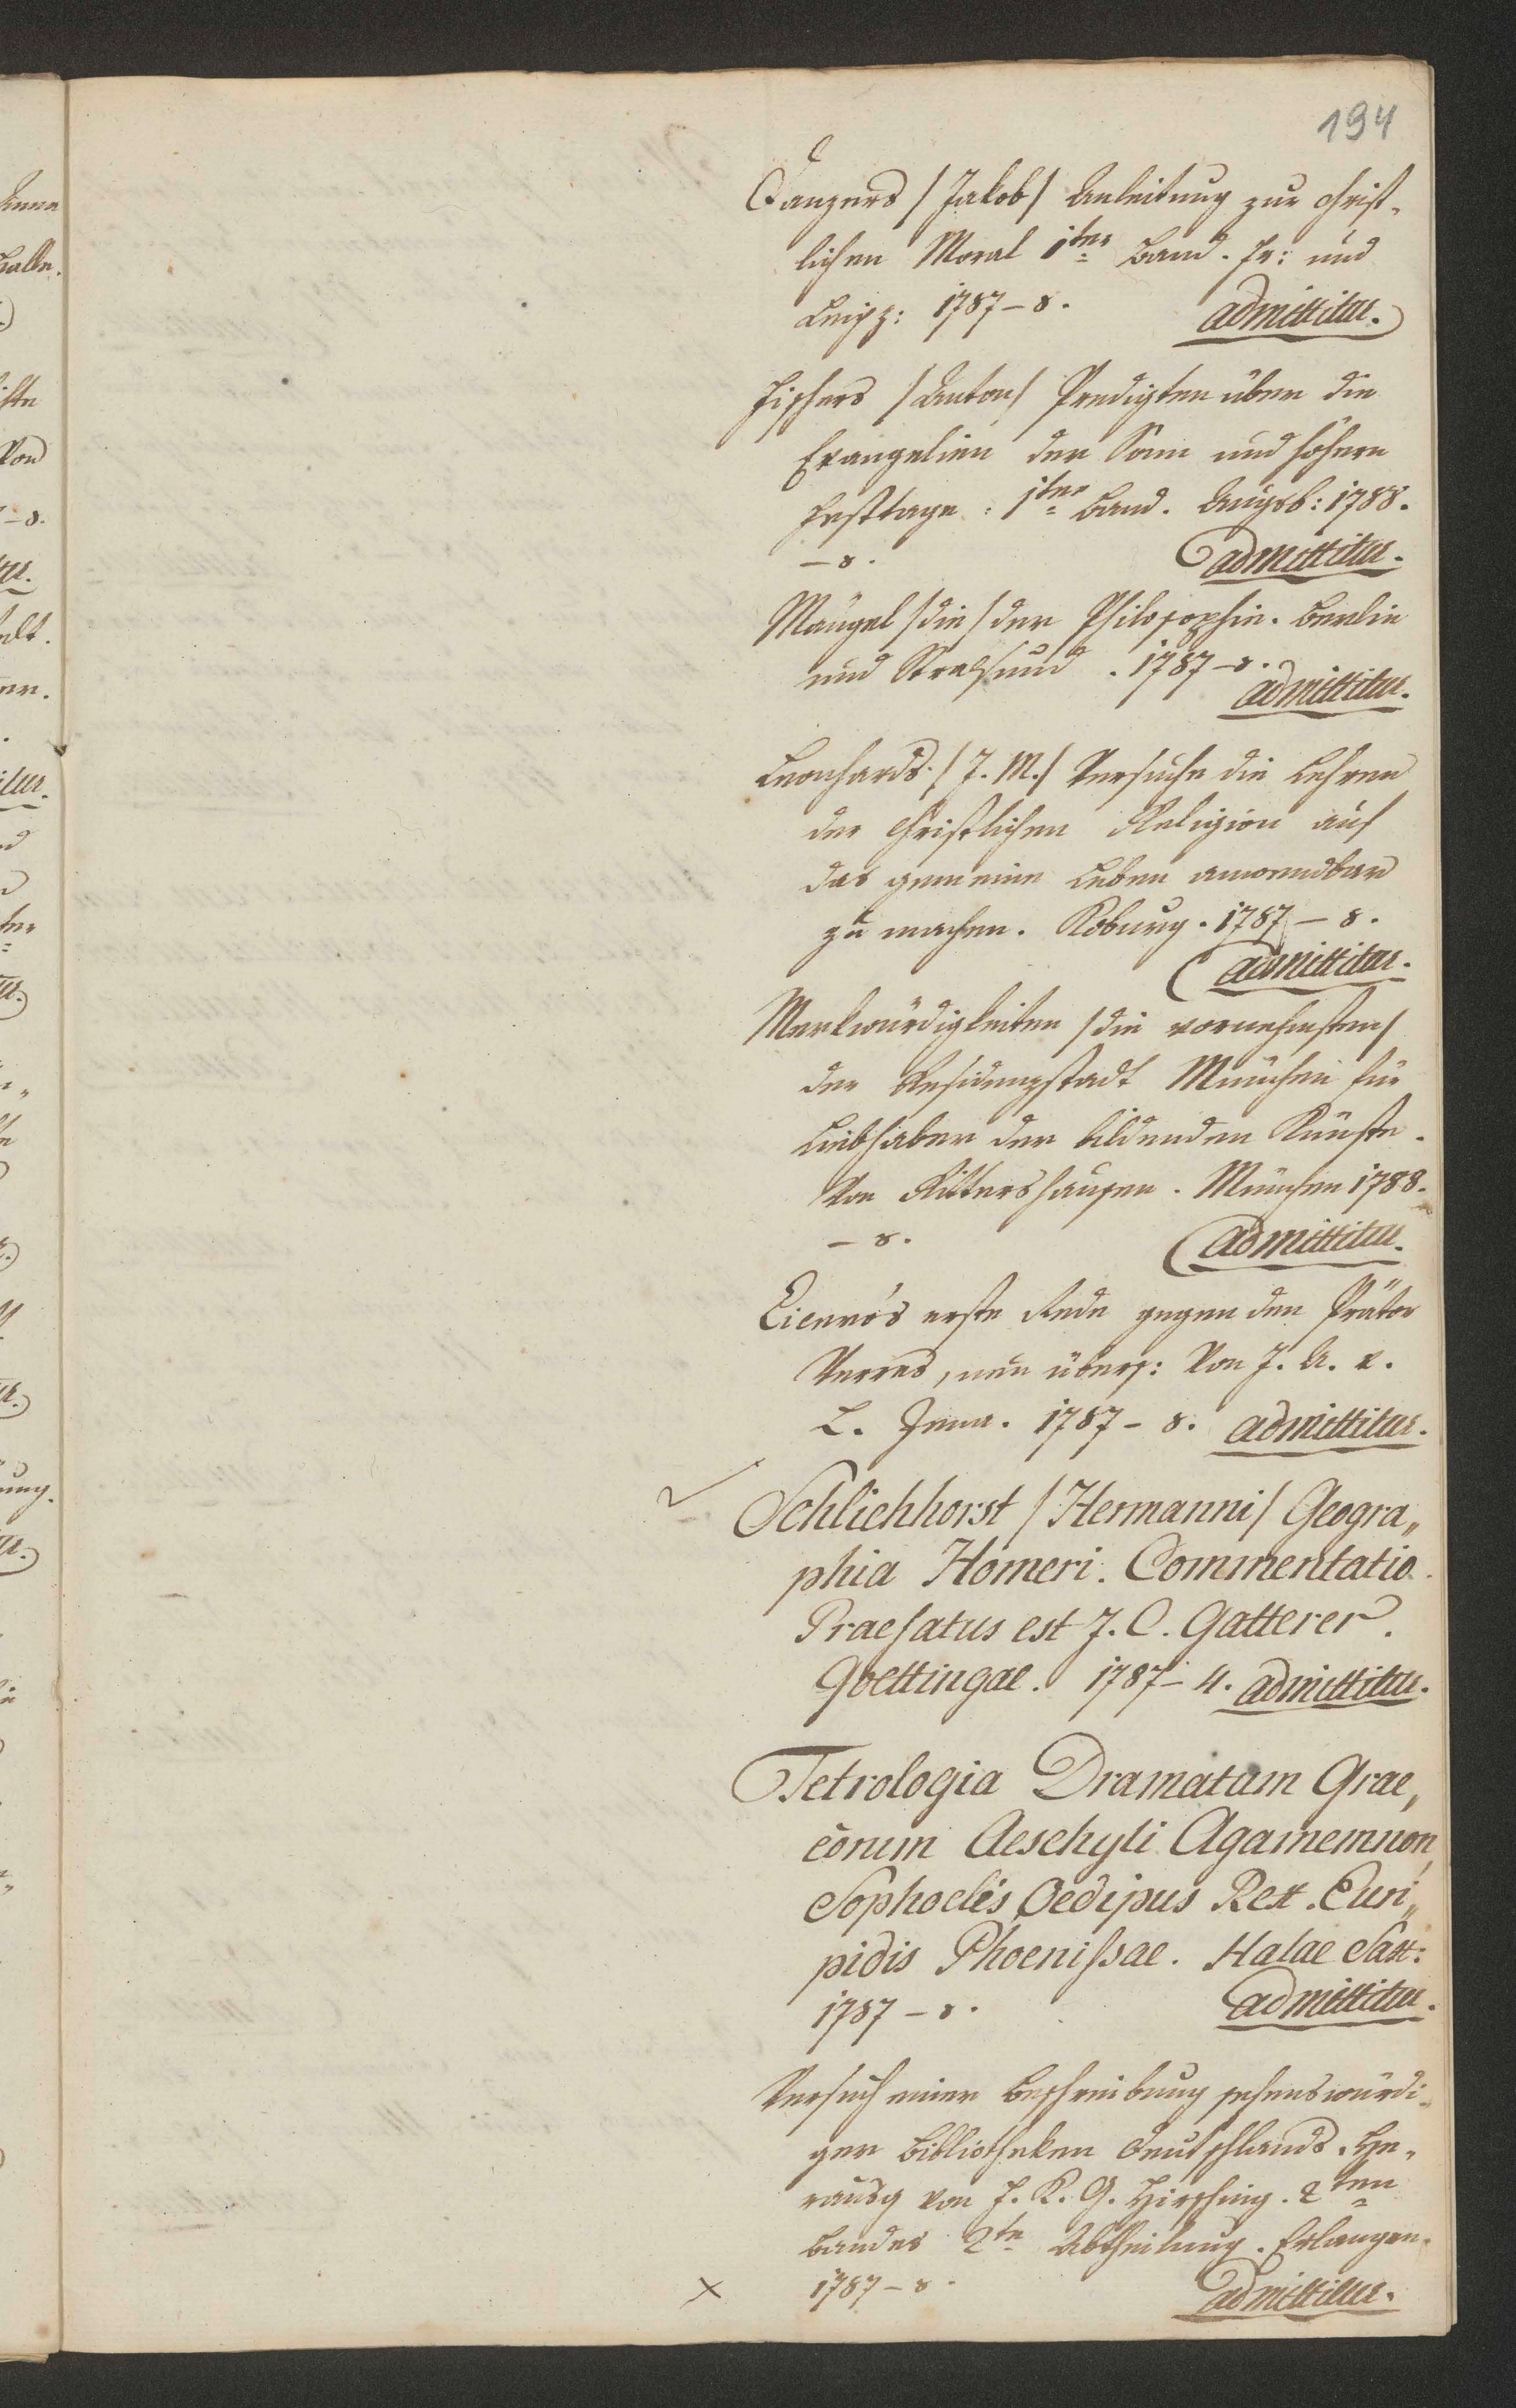 194
Danzers /Jakob/ Anleitung zur christ-
lichen Moral 1ter Band. Fr: und
Leipz: 1787-8. admittitur.
Fischers /Anton/ Predigten über die
Evangelien der Sonn und höhern
Festtage. 1ter Band. Augsb: 1788.
-8. admittitur.
Mängel /die/ der Philosophie. Berlin
und Stralsund. 1787-8.
admittitur.
Leonhards /J. M./ Versuche die Lehren
der christlichen Religion auf
das gemeine Leben anwendbar
zu machen. Koburg. 1787-8.
admittitur.
Merkwürdigkeiten /die vornehmsten/
der Residenzstadt München für
Liebhaber der bildenden Künste.
Von Rittershausen. München 1788.
-8. admittitur.
Cicero's erste Rede gegen den Prätor
Verres, neu übers: Von J. A. v.
L. Jena. 1787-8. admittitur.
Schlichhorst /Hermanni/ Geogra„
phia Homeri. Commentatio.
Praefatus est J. C. Gatterer.
Goettingae. 1787-4. admittitur.
Tetrologia Dramatum Grae„
corum Aeschyli Agamemnon,
Sophoclis Oedipus Rex. Euri„
pidis Phoenissae. Halae Sax:
1787-8. admittitur.
Versuch einer Beschreibung sehenswürdi-
ger Bibliotheken Teutschlands. He-
rausg von F. K. G. Hirsching. 2ten
Bandes 2te Abtheilung. Erlangen.
1787-8. admittitur.